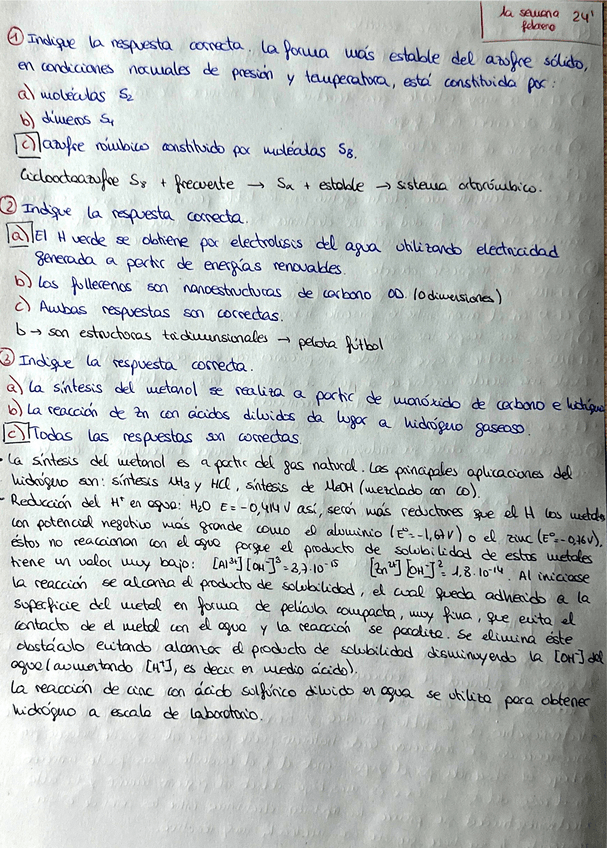 1a semana 24'
febrero
① Indique la respuesta correcta. La forma más estable del azufre sólido,
en condiciones normales de presión y temperatura, está constituida por:
a) moléculas S2
b) dímeros S4
c) azufre rómbico constituido por moléculas S8.
Ciclooctaazufre S8 + frecuente → Sα + estable → sistema ortorrómbico.
② Indique la respuesta correcta.
a) El H verde se obtiene por electrolisis del agua utilizando electricidad
generada a partir de energías renovables.
b) Los fullerenos son nanoestructuras de carbono 0D. (0 dimensiones)
c) Ambas respuestas son correctas.
b → son estructuras tridimensionales → pelota fútbol
③ Indique la respuesta correcta.
a) La síntesis del metanol se realiza a partir de monóxido de carbono e hidrógeno
b) La reacción de Zn con ácidos diluidos da lugar a hidrógeno gaseoso.
c) Todas las respuestas son correctas.
• La síntesis del metanol es a partir del gas natural. Las principales aplicaciones del
hidrógeno son: síntesis NH3 y HCl, síntesis de MeOH (mezclado con CO).
- Reducción del H+ en agua: H2O E = -0,414 V así, serán más reductores que el H los metales
con potencial negativo más grande como el aluminio (E° = -1,67V) o el zinc (E° = -0,76V),
éstos no reaccionan con el agua porque el producto de solubilidad de estos metales
tiene un valor muy bajo: [Al3+][OH-]3 = 3,7·10-15 [Zn2+][OH-]2 = 1,8·10-14. Al iniciarse
la reacción se alcanza el producto de solubilidad, el cual queda adherido a la
superficie del metal en forma de película compacta, muy fina, que evita el
contacto de el metal con el agua y la reacción se paraliza. Se elimina éste
obstáculo evitando alcanzar el producto de solubilidad disminuyendo la [OH-] del
agua (aumentando [H+], es decir en medio ácido).
La reacción de cinc con ácido sulfúrico diluido en agua se utiliza para obtener
hidrógeno a escala de laboratorio.